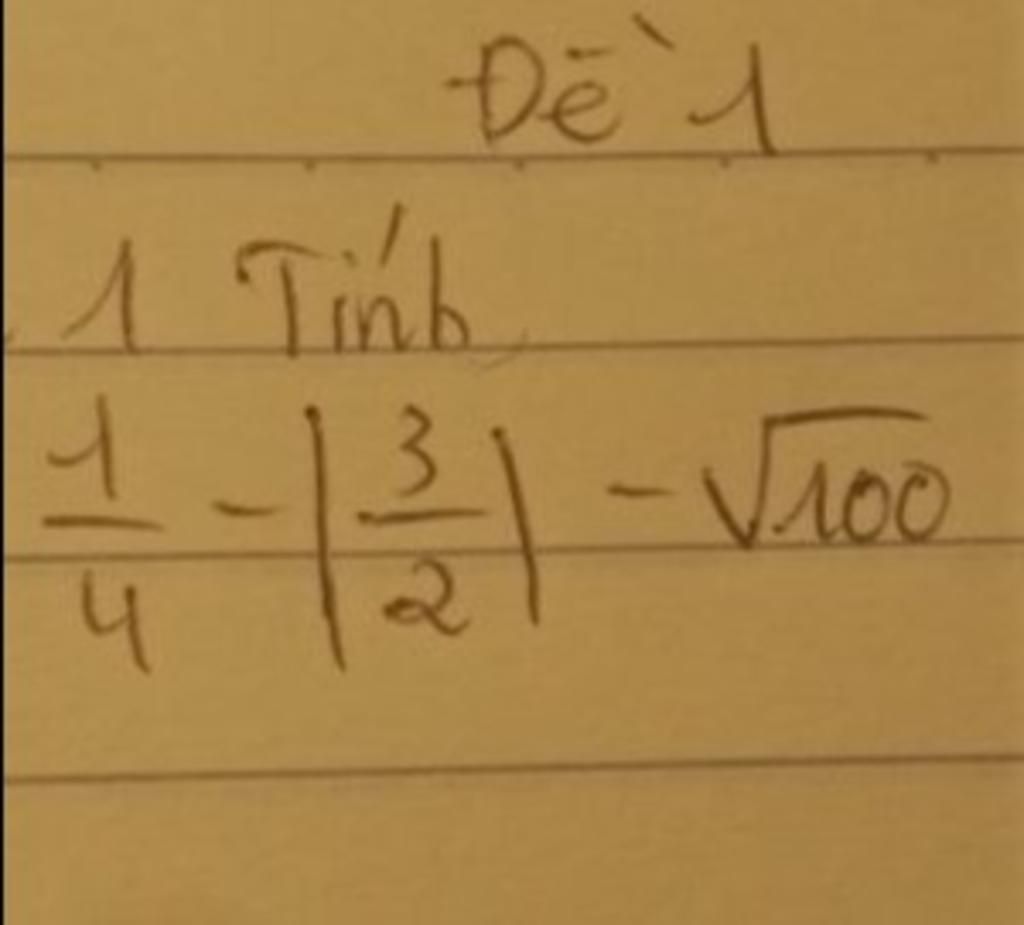 Đề 1
1 Tính
1/4 - |3/2| - √100